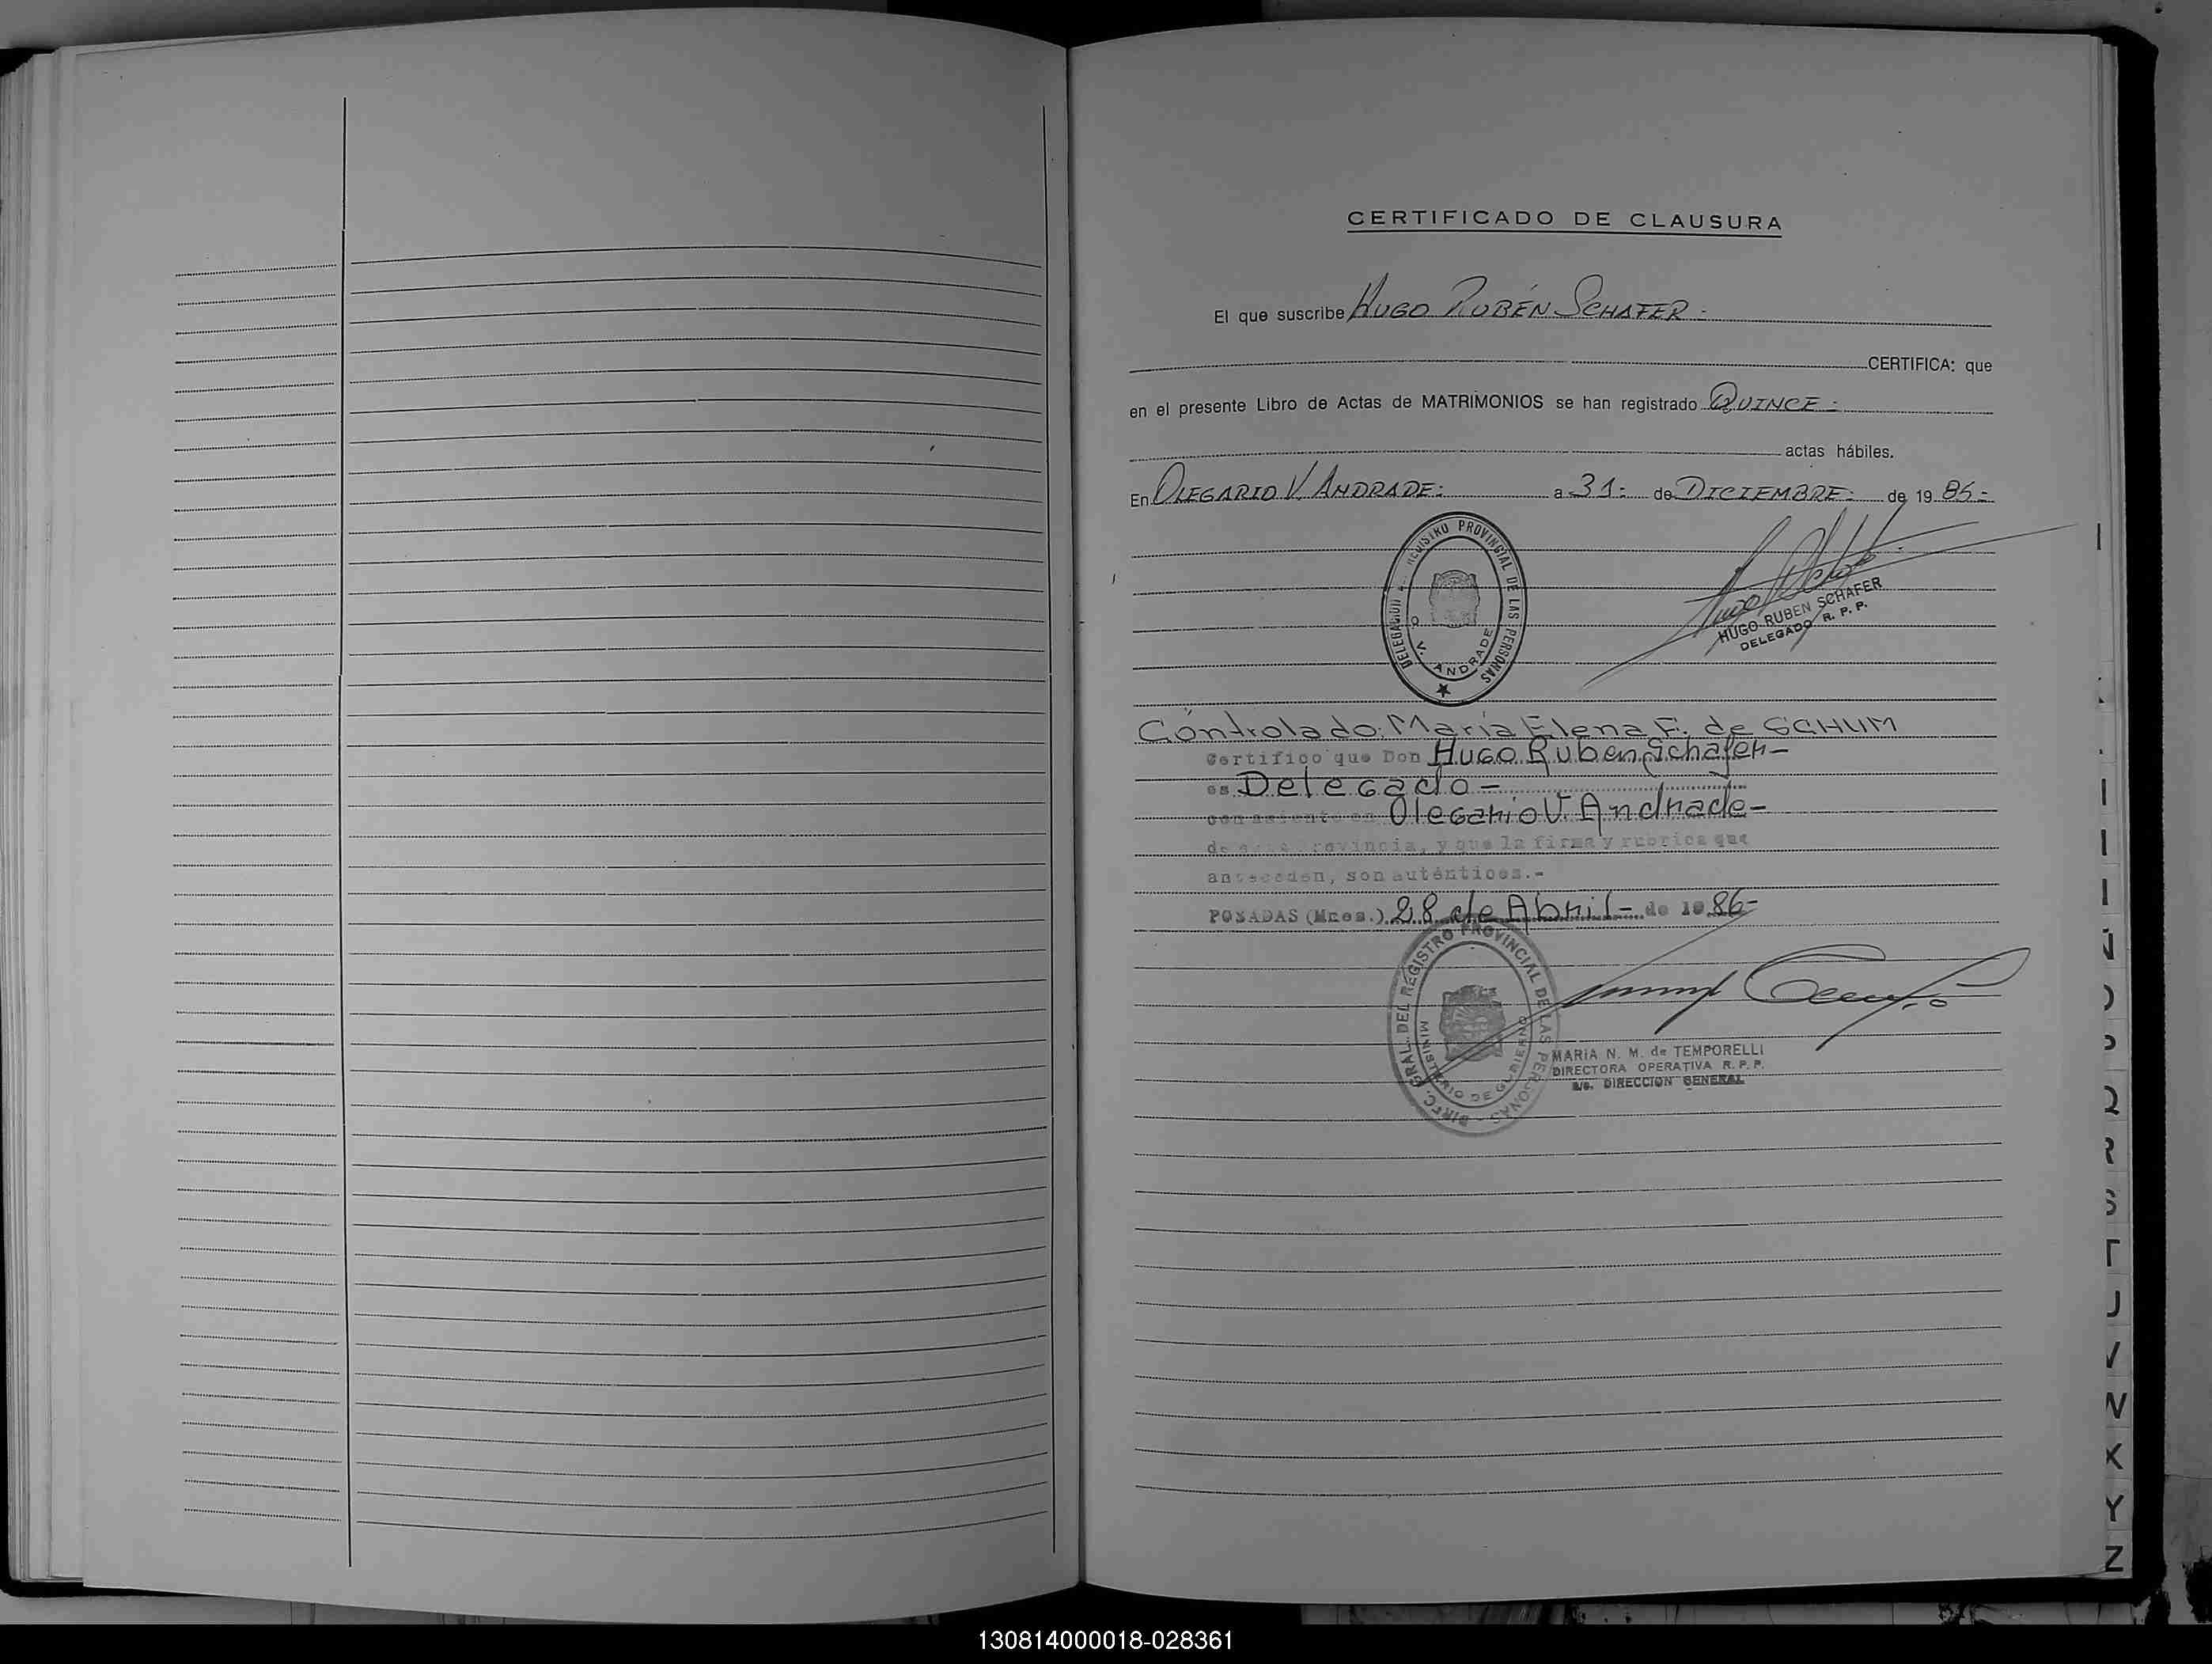 CERTIFICADO DE CLAUSURA
El que suscribe HUGO RUBÉN SCHAFER :
CERTIFICA: que
en el presente Libro de Actas de MATRIMONIOS se han registrado QUINCE :
actas hábiles.
En OLEGARIO V. ANDRADE: a 31: de DICIEMBRE: de 19 85 =
REGISTRO PROVINCIAL DE LAS PERSONAS
DELEGACION
O. V. ANDRADE
HUGO RUBEN SCHAFER
DELEGADO R. P. P.
Controlado: María Elena F. de SCHUM
Certifico que Don Hugo Ruben Schafer-
es Delegado-
con asiento en Olegario V. Andrade-
de esta Provincia, y que la firma y rubrica que
anteceden, son auténticos.-
POSADAS (Mnes.) 28 de Abril- de 19 86-
DIREC. GRAL. DEL REGISTRO PROVINCIAL DE LAS PERSONAS
MINISTERIO DE GOBIERNO
MARIA N. M. de TEMPORELLI
DIRECTORA OPERATIVA R. P. P.
a/c. DIRECCION GENERAL
J
N
O
P
Q
R
S
T
U
V
W
X
Y
Z
130814000018-028361